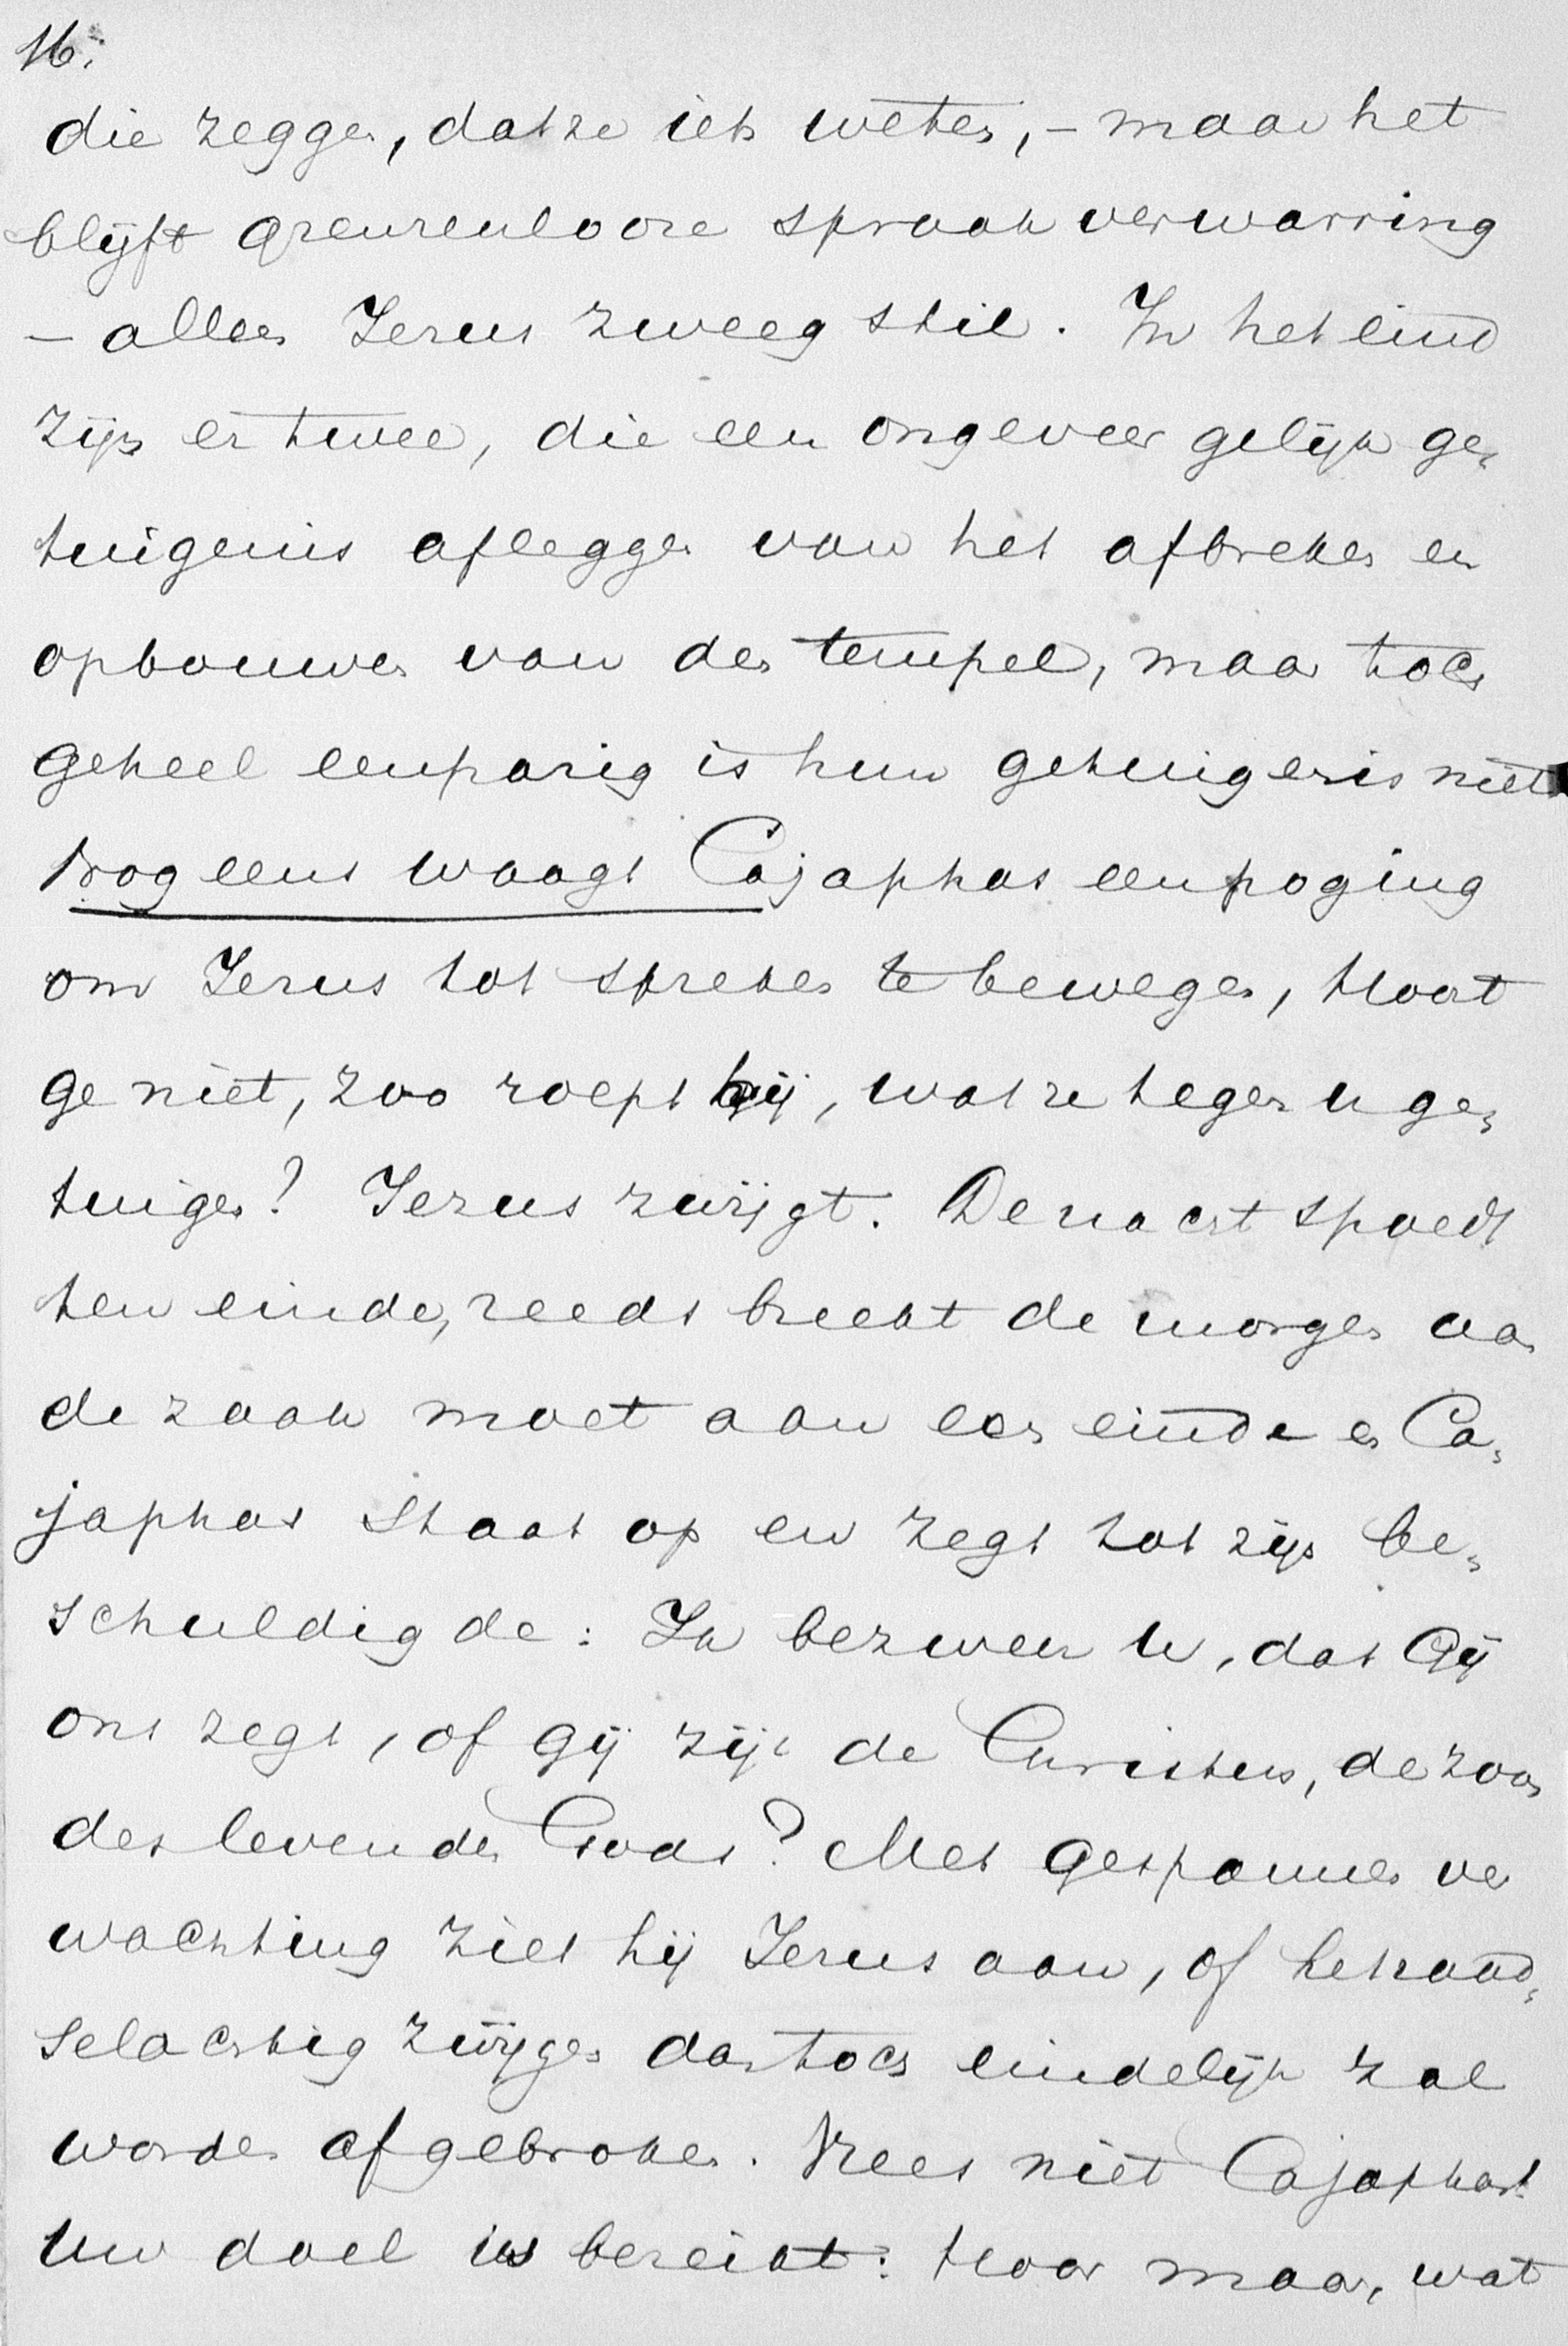 16.
die zeggen, dat ze iets weten, - maar het
blijft grenzenlooze spraakverwarring
- alleen Jezus zweeg stil. In het eind
zijn er twee, die een ongeveer gelijk ge-
tuigenis afleggen van het afbreken en
opbouwen van den tempel, maar toch
geheel eenparig is hun getuigenis niet
Nog eens waagt Cajaphas een poging
om Jezus tot spreken te bewegen, Hoort
ge niet, zoo roept hij, wat ze tegen u ge-
tuigen? Jezus zwijgt. De nacht spoedt
ten einde, reeds breekt de morgen aan
de zaak moet aan een einde en Ca-
japhas staat op en zegt tot zijn be-
schuldigde: Ik bezweer U, dat Gij
ons zegt, of gij zijt de Christus, de zoon
des levenden Gods? Met gespannen ver
wachting ziet hij Jezus aan, of het raad-
selachtig zwijgen dan toch eindelijk zal
worden afgebroken. Vrees niet Cajaphas!
Uw doel is bereikt: Hoor maar, wat